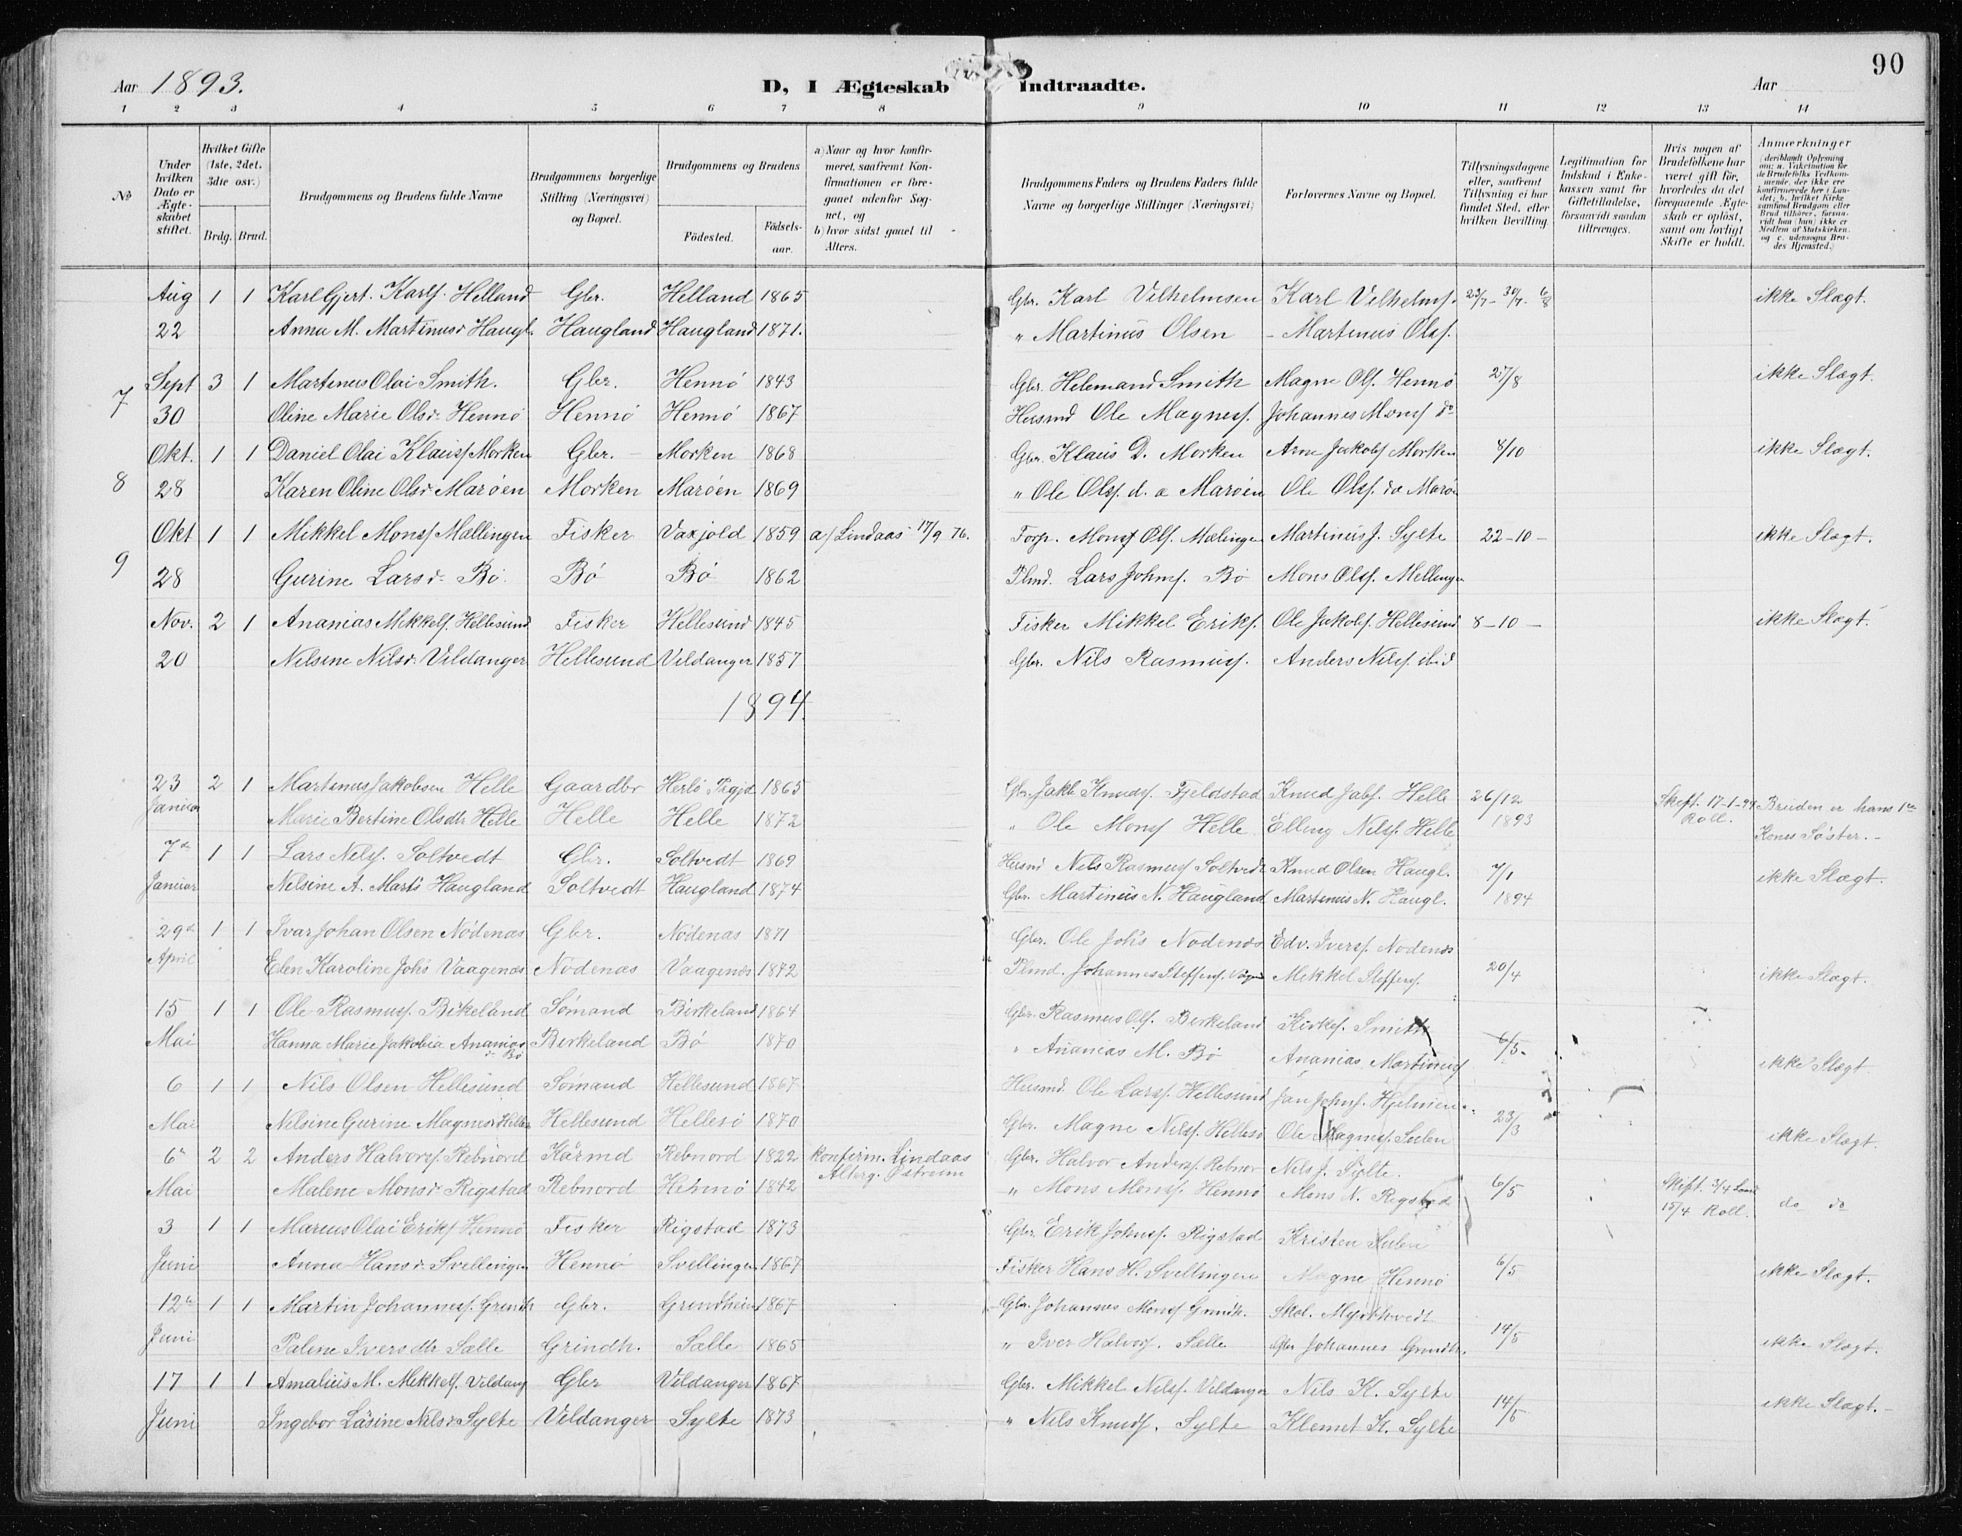 90
Aar 1893. D, I Ægteskab Indtraadte. Aar
1 2 3 4 5 6 7 8 9 10 11 12 13 14
No
Under hvilken Dato er Ægteskabet stiftet.
Hvilket Gifte (1ste, 2det, 3dte osv.)
Brdg. Brud.
Brudgommens og Brudens fulde Navne
Brudgommens borgerlige Stilling (Næringsvei) og Bopæl.
Brudgommens og Brudens
Fødested. Fødselsaar.
a) Naar og hvor konfirmeret, saafremt Konfirmationen er foregaaet udenfor Sognet, og
b) hvor sidst gaaet til Alters.
Brudgommens Faders og Brudens Faders fulde Navne og borgerlige Stillinger (Næringsvei)
Forlovernes Navne og Bopæl.
Tillysningsdagene eller, saafremt Tillysning ei har fundet Sted, efter hvilken Bevilling.
Legitimation for Indskud i Enkekassen samt for Giftetilladelse, forsaavidt saadan tiltrænges.
Hvis nogen af Brudefolkene har været gift før, hvorledes da det foregaaende Ægteskab er opløst, samt om lovligt Skifte er holdt.
Anmærkninger
Aug 1 1 Karl Gjert. Karls. Helland Gbr. Helland 1865 Gbr. Karl Vilhelmsen Karl Vilhelms. 23/7 - 30/7 - 6/8 ikke Slægt.
22 Anna M. Martinusd Haugl. Haugland Haugland 1871. " Martinus Olsen - Martinus Ols.
7 Sept 3 1 Martinus Olai Smith. Gbr. Hennø 1843 Gbr. Helemand Smith Magne Ols. Hennø 27/8 ikke Slægt.
30 Oline Marie Olsdr Hennø Hennø Hennø 1867. Husmd Ole Magness. Johannes Mons do
8 Okt. 1 1 Daniel Olai Klauss Morken Gbr. - Morken 1868 Gbr. Klaus D. Morken Arne Jakobs Morken 8/10 ikke Slægt.
28 Karen Oline Olsdr Marøen Morken Marøen 1869 " Ole Ols. d. a Marøen Ole Ols. da Marø
9 Okt 1 1 Mikkel Mons Mellingen Fisker Vaxjold 1859 a/ Lindaas 17/9 76. Forp. Mons Ols. Mælingen Martinus J. Sylte 22-10- ikke Slægt.
28 Gurine Larsdr Bø. Bø Bø 1862 Plmd. Lars Johns. Bø Mons Ols. Mellingen
Nov. 2 1 Ananias Mikkels. Hellesund Fisker Hellesund 1845 Fisker Mikkel Eriks. Ole Jakobs. Hellesund 8-10- ikke Slægt.
20 Nilsine Nilsdr Vildanger Hellesund Vildanger 1857 Gbr. Nils Rasmuss. Anders Nils. ibid
1894
23 2 1 Martinus Jakobsen Helle Gaardbr Herlø Prgjd 1865 Gbr. Jakb Knuds. Fjeldstad Knud Jabs. Helle 26/12 Skift. 17-1-94 Bruden er hans 1te
Januar Marie Bertine Olsdtr Helle Helle Helle 1872 " Ole Mons Helle Elling Nils. Helle 1893 Roll. Kones Søster. -
7de 1 1 Lars Nils. Soltvedt Gbr. Soltvedt 1869 Husmd Nils Rasmuss Soltvedt Knud Olsen Haugl. 7/1 ikke Slægt.
Januar Nilsine A. Marts Haugland Soltvedt Haugland 1874 Gbr. Martinus N. Haugland Martinus N. Haugl. 1894
29de 1 1 Ivar Johan Olsen Nødenæs Gbr. Nødenas 1871 Gbr. Ole Johs Nodenæs Edv. Ivers. Nodenæs
April Elen Karoline Johs Vaagenæs Nodenas Vaagenæs 1872 Plmd. Johannes Steffens. Mikkel Steffens. 20/4 ikke Slægt.
15 1 1 Ole Rasmuss. Birkeland Sømand Birkeland 1864 Gbr. Rasmus Ols. Birkeland Kirkes. Smith
Mai Hanna Marie Jakobia Ananias dr Bø Birkeland Bø 1870 " Ananias M. Bø Ananias Martinus 6/5- ikke Slægt
6 1 1 Nils Olsen Hellesund Sømand Hellesund 1867 Husmd. Ole Larss. Hellesund Jan Johns. Hjelmen
Mai Nilsine Gurine Magnusdr Hellesund Hellesø 1870 Gbr. Magne Nils. Hellesø Ole Magness. Sulen 23/3 ikke Slægt.
6te 2 2 Anders Halvors. Rebnord Kårmd Rebnord 1822 konfirm. Lindaas Gbr. Halvor Anders. Rebnor Nils J. Sylte.
Mai Malene Monsdr Rigstad Rebnord Hennø 1842 Alterg. Østreim " Mons Mons. Hennø Mons N. Rigstad 6/5 Skift. 3/4 15/4 Roll. do do
3 1 1 Marius Olai Eriks Hennø Fisker Rigstad 1873 Gbr. Erik Johns. Rigstad Kristen Sulen
Juni Anna Hansdr Svellingen Hennø Svellingen 1867 Fisker Hans H. Svellingen Magne Hennø 6/5 ikke Slægt.
12te 1 1 Martin Johanness. Grindh Gbr. Grindheim 1867 Gbr. Johannes Mons Grindh. Skol. Myrthvedt
Juni Paline Iversdtr Sælle Grindh. Sælle 1865 " Iver Halvors. Sælle Gbr Johannes Grindh. 14/5 ikke Slægt.
17 1 1 Amalius M. Mikkels. Vildang Gbr Vildanger 1867 Gbr. Mikkel Nils. Vildanger Nils K. Sylte
Juni Ingebor Låsine Nilsdr Sylte Vildanger Sylte 1873 " Nils Knuds. Sylte Klemet K. Sylte 14/5 ikke Slægt. -